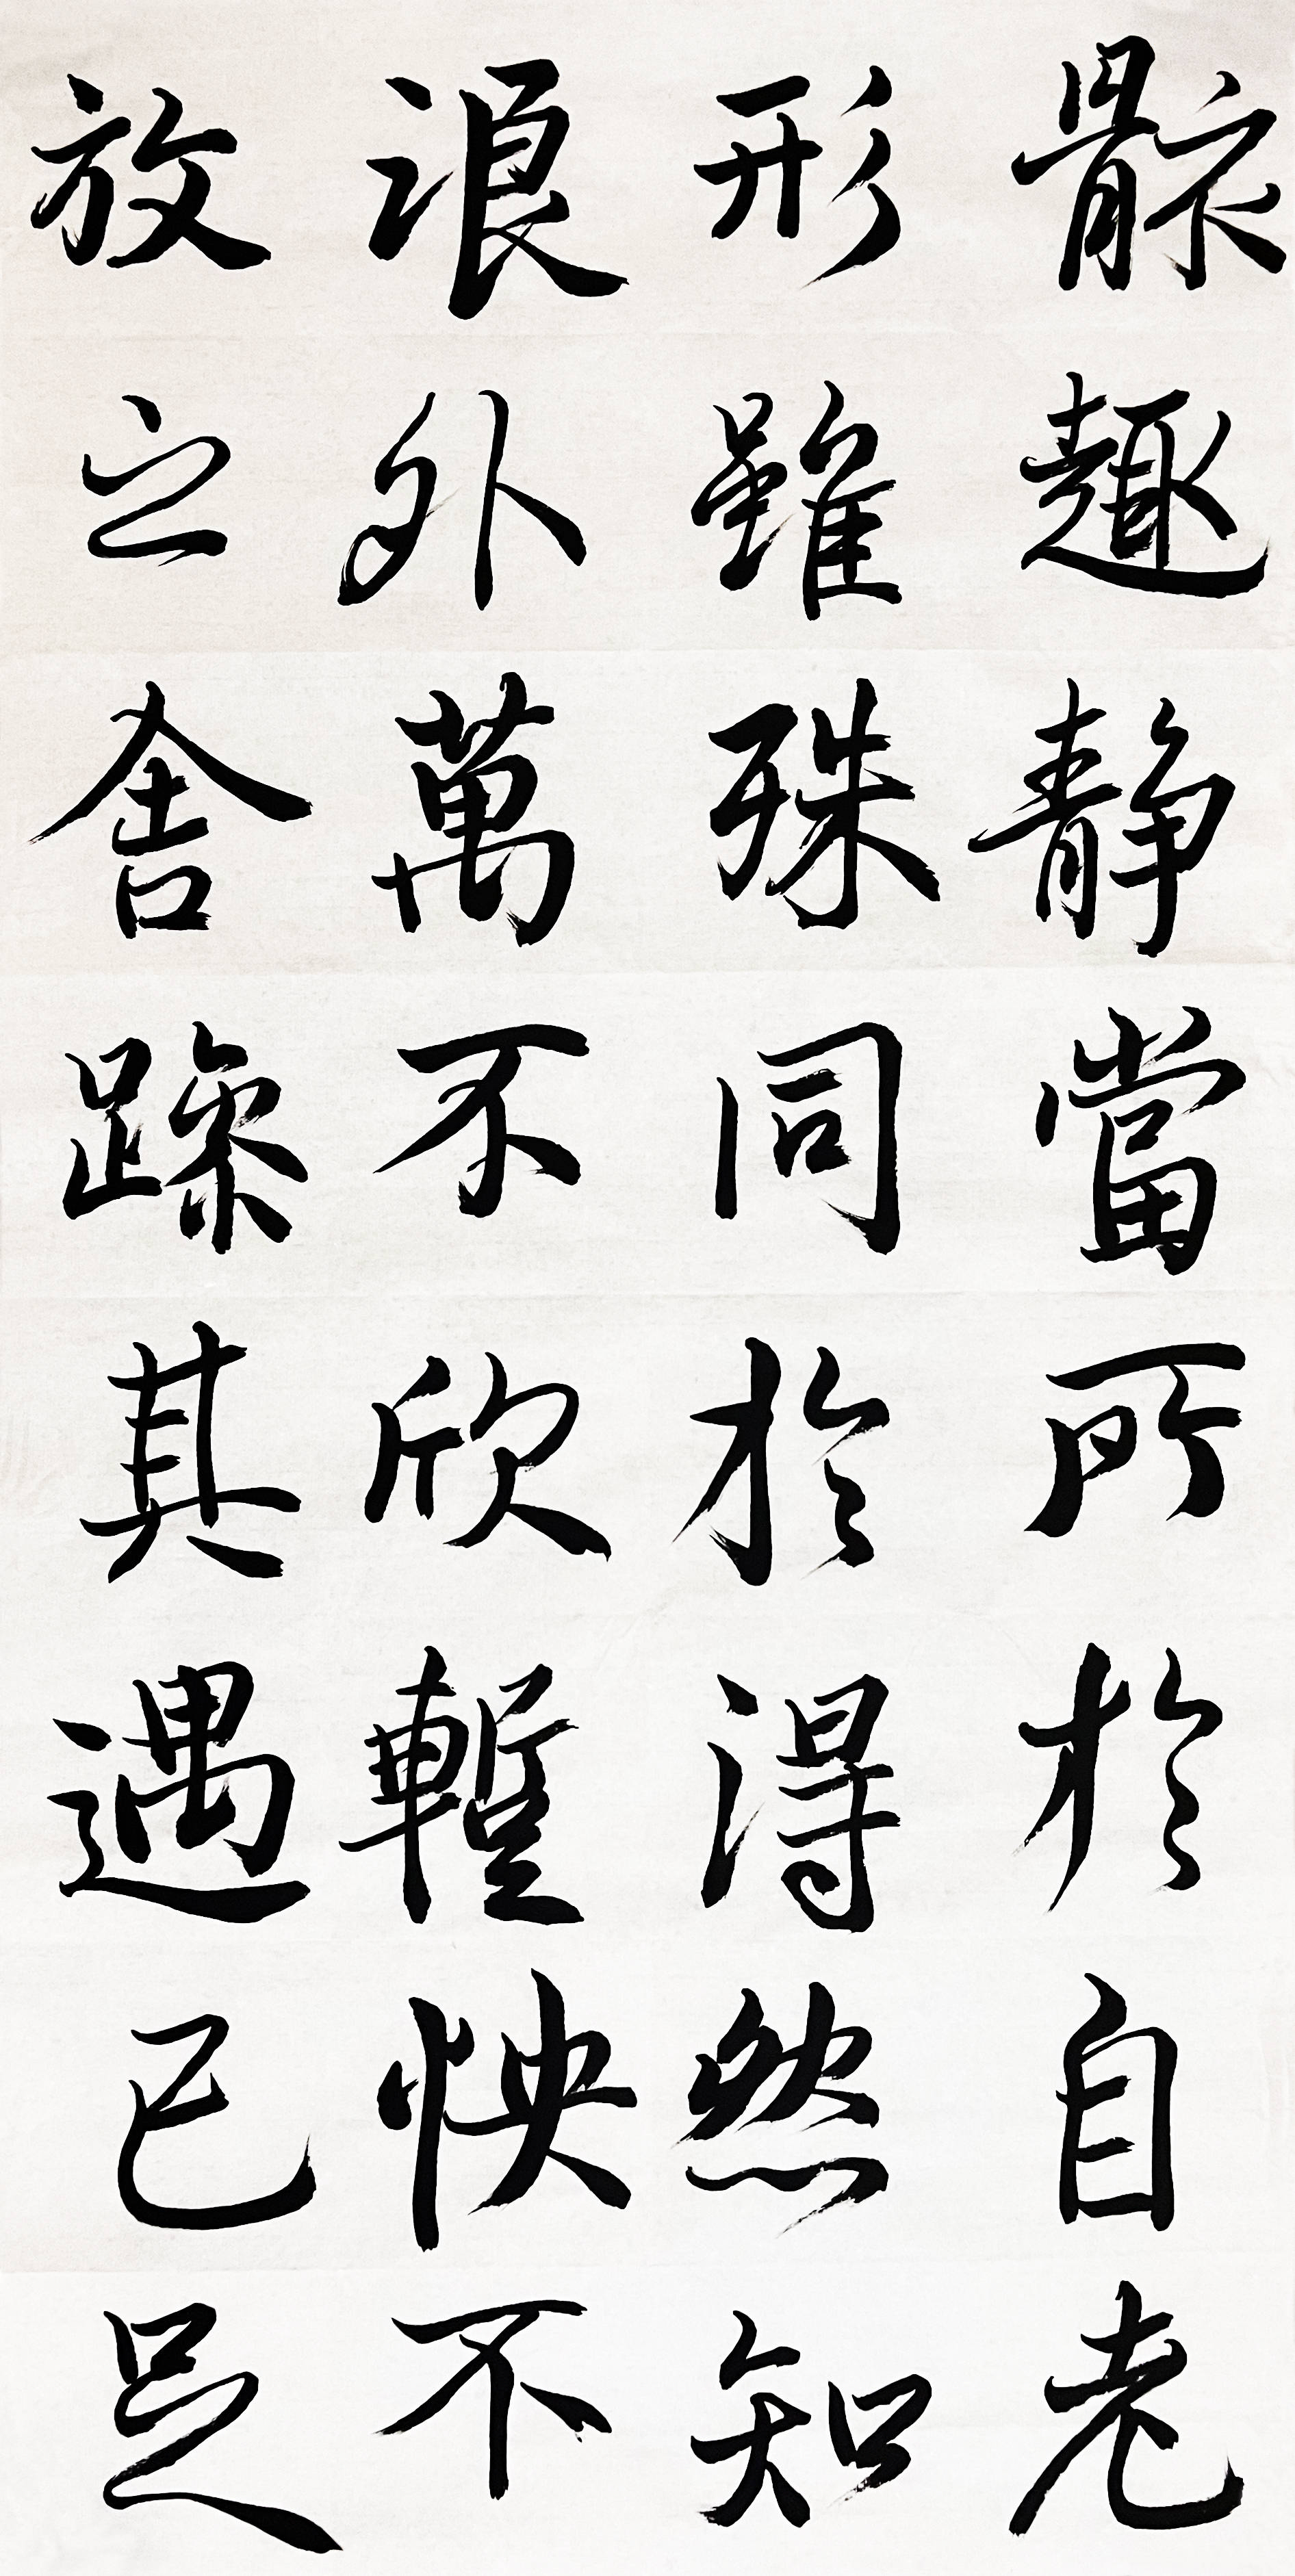 放浪形骸
之外雖趣
舍萬殊静
躁不同當
其欣於所
遇暫得於
已怏然自
足不知老